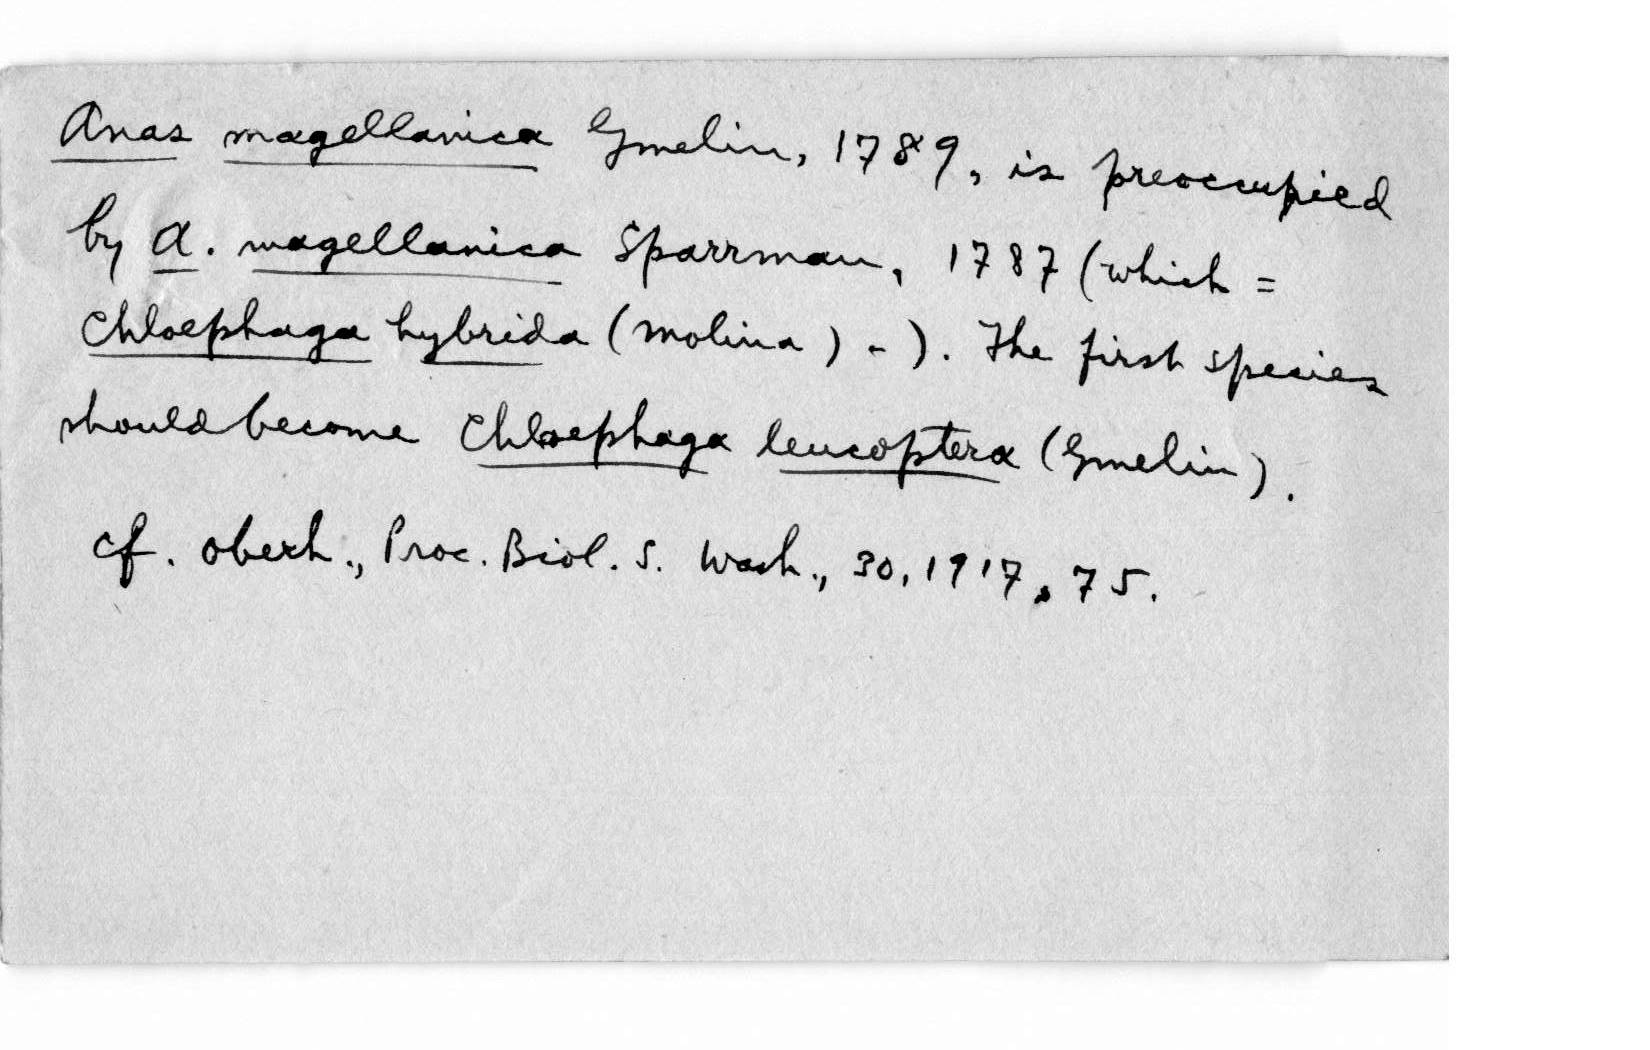 Anas magellanica Gmelin, 1789, is preoccupied
by A. magellanica Sparrman, 1787 (which =
Chloephaga hybrida (Molina) - ). The first species
should become Chloephaga leucoptera (Gmelin).
cf. Oberh., Proc. Biol. S. Wash., 30, 1917, 75.